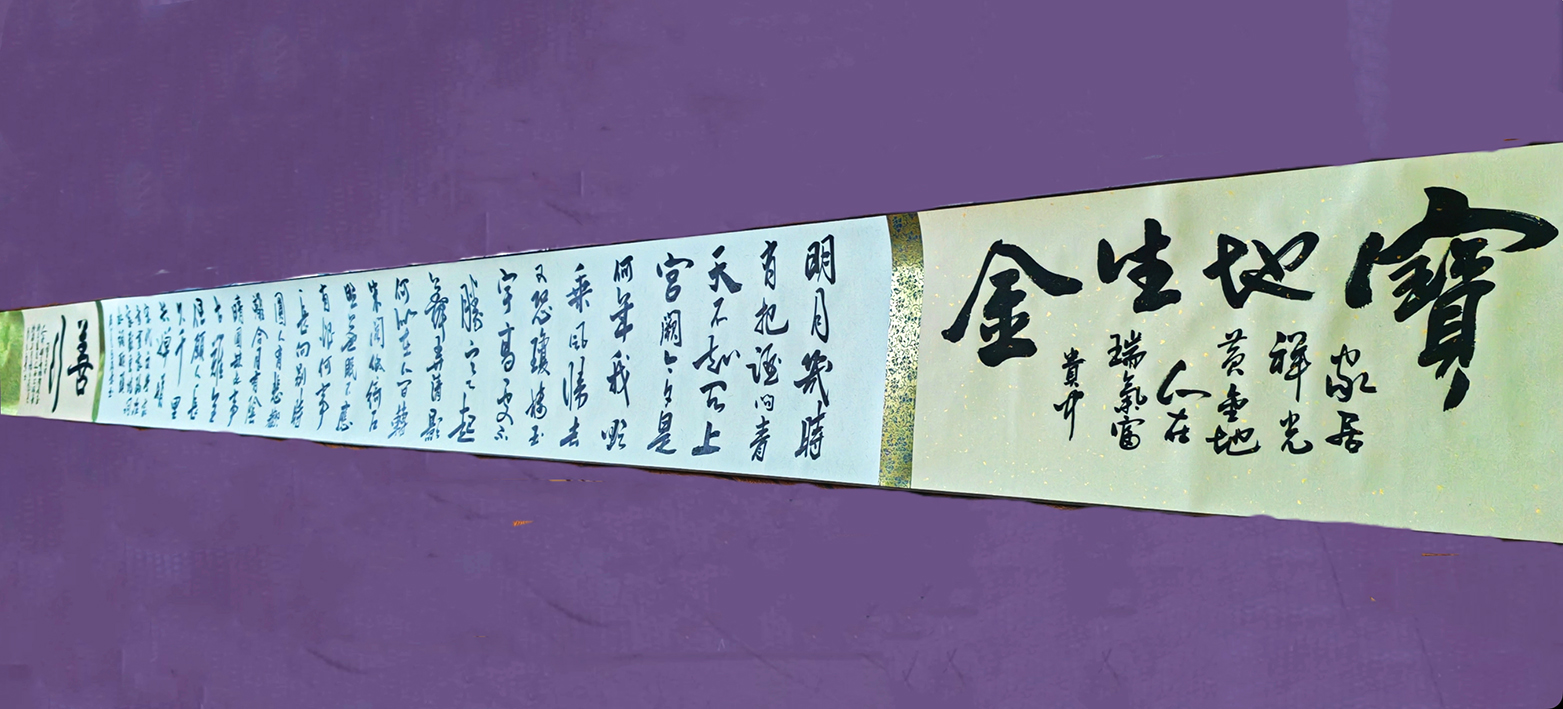 寶地生金
家居
祥光
黃金地
人在
瑞氣富
貴中
明月幾時
有把酒問青
天不知天上
宮闕今夕是
何年我欲
乘風歸去
又恐瓊樓玉
宇高處不
勝寒起
舞弄清影
何似在人間轉
朱閣低綺戶
照無眠不應
有恨何事
長向別時
圓人有悲歡
離合月有陰
晴圓缺此事
古難全
但願人長
久千里
共嬋娟
善